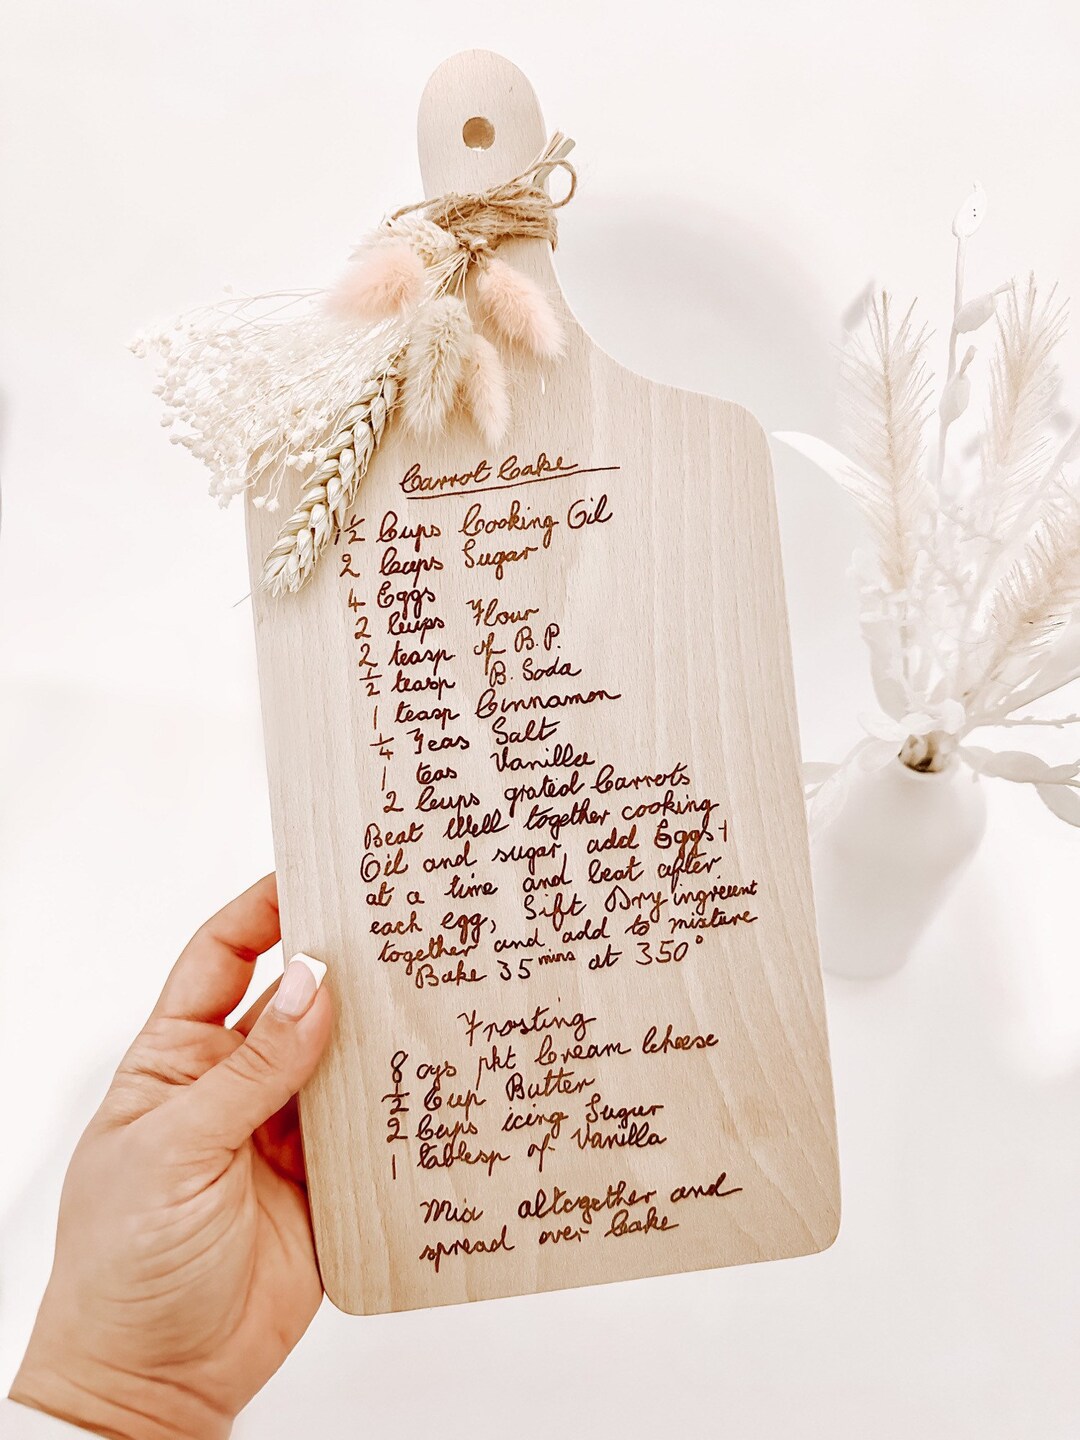 Carrot Cake
1½ Cups Cooking Oil
2 Cups Sugar
4 Eggs
2 Cups Flour
2 teasp of B.P.
½ teasp B. Soda
1 teasp Cinnamon
¼ Teas Salt
1 teas Vanilla
2 Cups grated Carrots
Beat Well together cooking
Oil and sugar, add Eggs 1
at a time and beat after
each egg, Sift Dry ingreient
together and add to mixture
Bake 35 mins at 350°
Frosting
8 ozs pkt Cream Cheese
½ Cup Butter
2 Cups icing Sugar
1 tablesp of Vanilla
Mix altogether and
spread over Cake